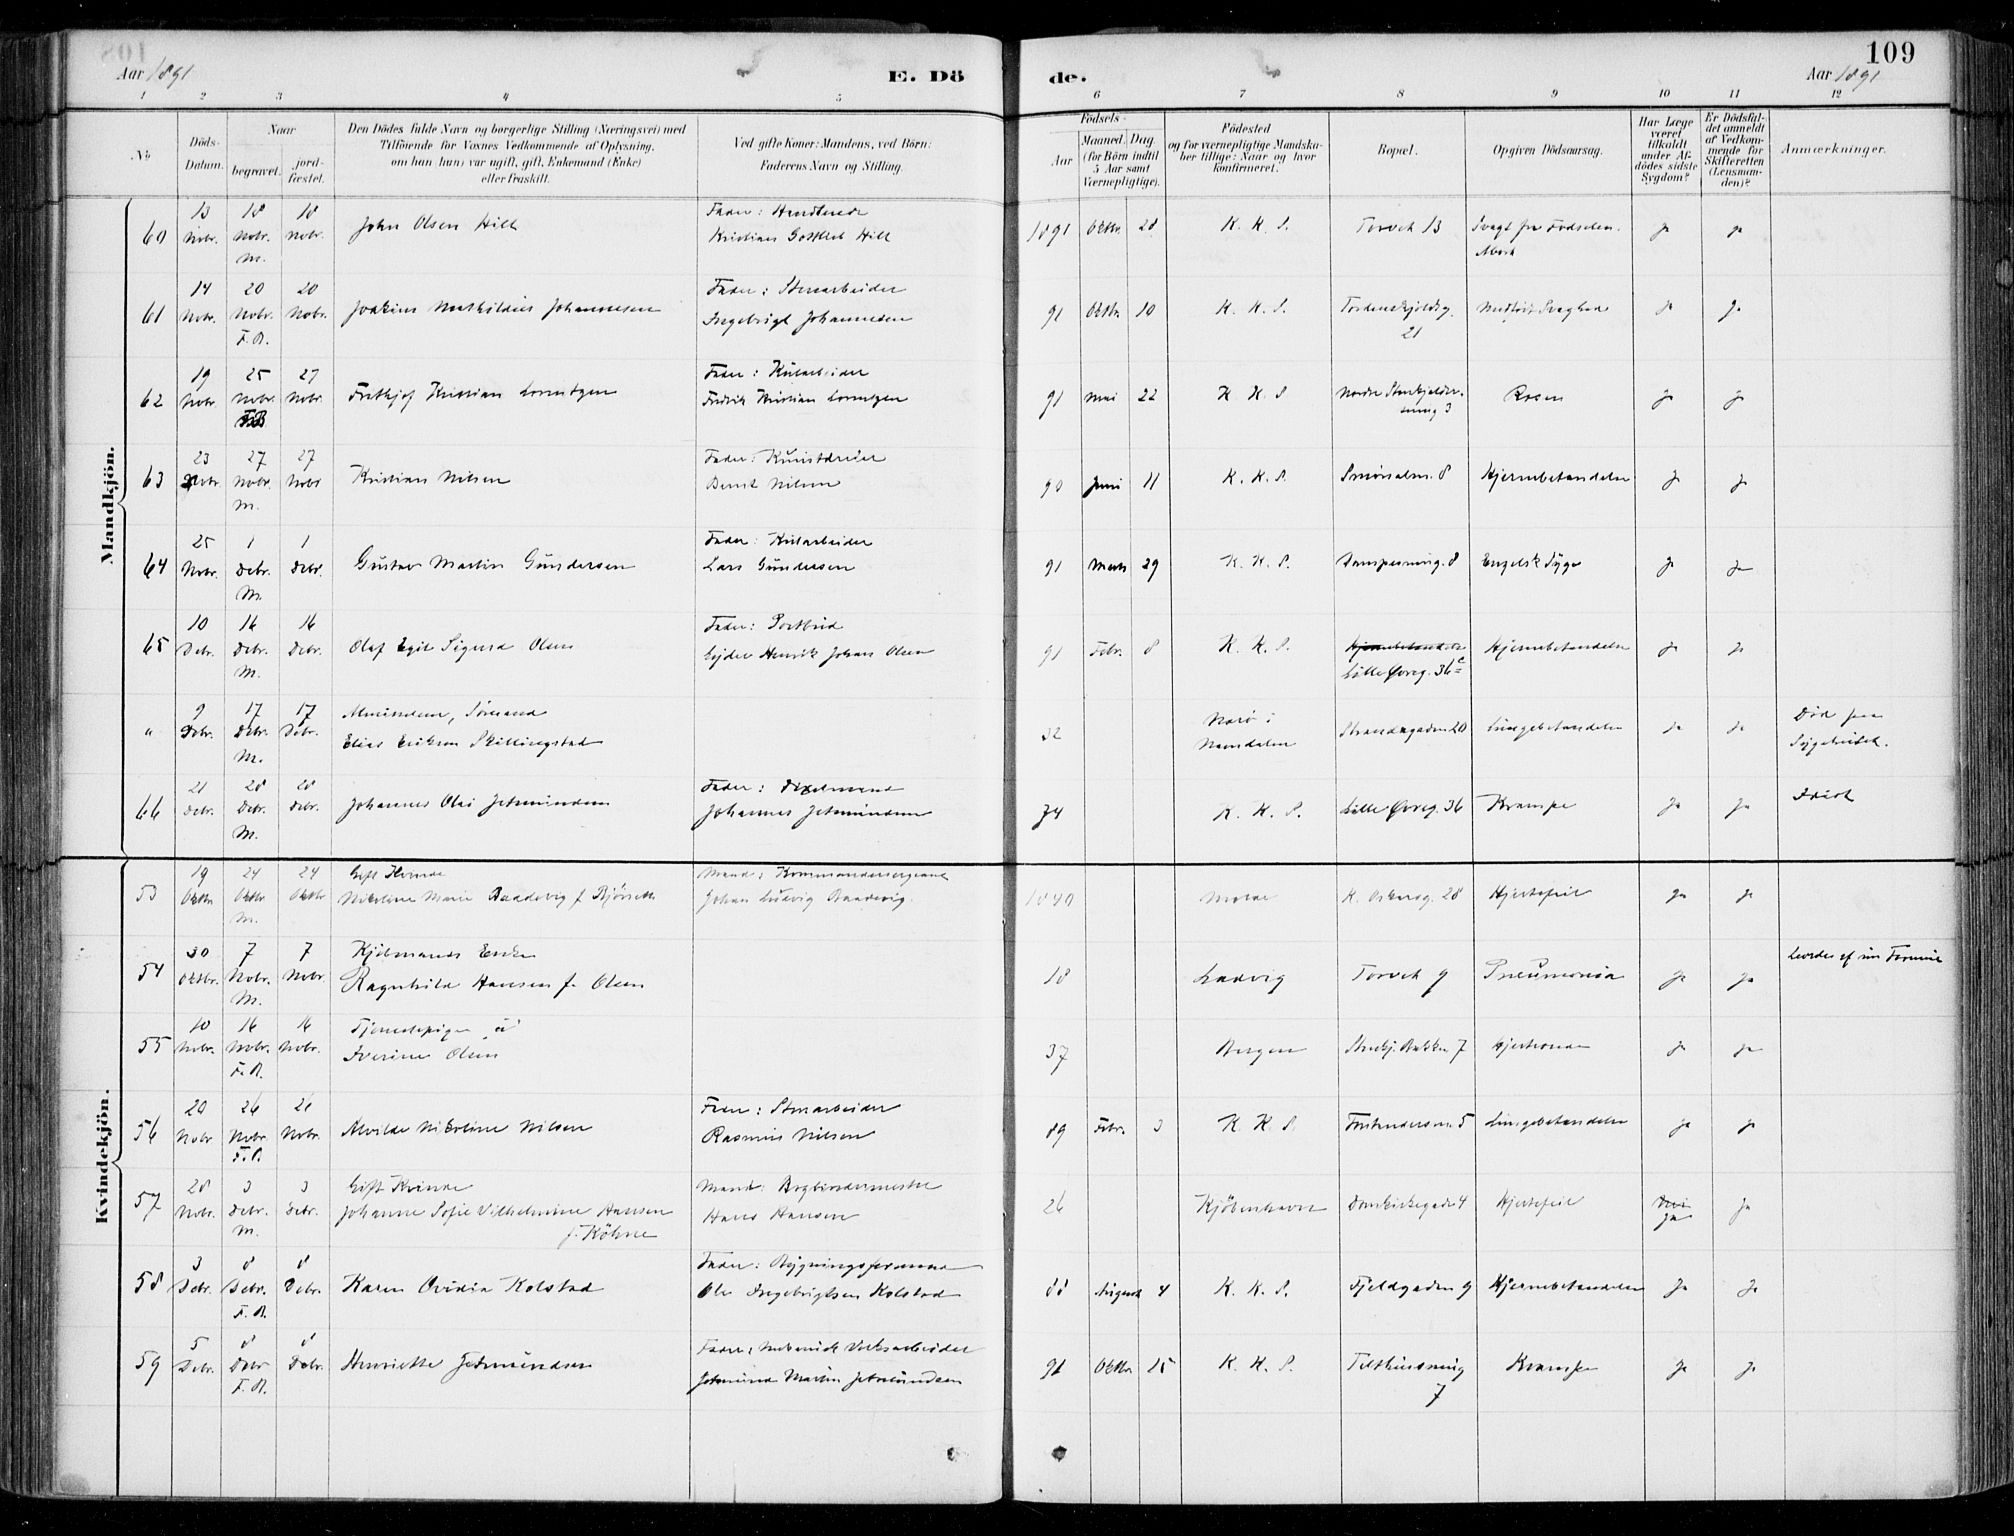 109
Aar 1891
E. Dö
de.
Aar 1891
1 2 3 4 5 6 7 8 9 10 11 12
No
Döds-Datum.
Naar
begravet.
jord-fæstet.
Den Dödes fulde Navn og borgerlige Stilling (Næringsvei) med
Tilföiende for Voxnes Vedkommende af Oplysning,
om han (hun) var ugift, gift, Enkemand (Enke)
eller fraskilt.
Ved gifte Koner: Mandens, ved Börn:
Faderens Navn og Stilling.
Födsels-
Aar
Maaned. Dag.
(for Börn indtil
5 Aar samt
Værnepligtige).
Födested
og for værnepligtige Mandska-
ber tillige: Naar og hvor
konfirmeret.
Bopæl.
Opgiven Dödsaarsag.
Har Læge
været
tilkaldt
under Af-
dödes sidste
Sygdom?
Er Dödsfal-
det anmeldt
af Vedkom-
mende for
Skifteretten
(Lensman-
den)?
Anmærkninger.
Mandkjön.
60 13 Nobr. 18 Nobr. M. 18 Nobr. John Olsen Hilt Fader: Handlende
Kristian Gottlieb Hilt 1891 Oktbr. 28 K. K. S. Torvet 13 Svagt fra Fødselen. ja ja
61 14 Nobr. 20 Nobr. F.B. 20 Nobr. Joakim Mathildius Johannesen Fader: Stenarbeider
Ingebrigt Johannesen 91 Oktbr. 10 K. K. S. Tordenskjoldsg. 21 Medfødt Svaghed ja ja
62 19 Nobr. 25 Nobr. 27 Nobr. Fritkjof Kristian Lorentzen Fader: Kularbeider
Fredrik Kristian Lorentzen 91 Mai 22 K. K. S Nordre 3 Rosen ja ja
63 23 Nobr. 27 Nobr. M. 27 Nobr Kristian Nilsen Fader: Kunstdreier
Bernt Nilsen 90 Juni 11 K. K. S. Smørsalm. 8 Hjernebetændelse ja ja
64 25 Nobr. 1 Debr. M. 1 Debr. Gustav Martin Gundersen Fader: Kularbeider
Lars Gundersen 91 Marts 29 K. K. S. 8 Engelsk Syge ja ja
65 10 Debr. 16 Debr. M. 16 Debr. Olaf Egil Sigurd Olsen Fader: Postbud
Henrik Johan Olsen 91 Febr. 8 K. K. S. Hjernebetændelse
Lille Øvreg. 36 Hjernebetændelse ja ja
" 9 Debr. 17 Debr. M. 17 Debr. Sømand
Elias Erikson Skillingstad 32 Nærø i
Namdalen Strandgaden 20 Lungebetændelse ja ja Død paa
Sygehuset.
66 21 Debr. 28 Debr. M. 28 Debr. Johannes Olai Jetmundsen Fader:
Johannes Jetmundsen 74 K. K. S. Lille Øvreg. 36 Krampe ja ja Idiot
Kvindekjön.
53 19 Oktbr 24 Oktbr M. 24 Oktbr Gift Kvinde
Nikoline Marie Raadevig f. Bjørseth Mand: Kommandersergeant
Johan Ludvig Raadevig. 1840 Molde K. Oskarsg. 28 Hjertefeil ja ja
54 30 Oktbr. 7 Nobr. M. 7 Nobr. Kjøbmands Enke
Ragnhild Hansen f. Olsen 18 Ladvig Torvet 9 Pneumonia ja ja
55 10 Nobr. 16 Nobr. F.B. 16 Nobr. Tjenestepige
Iverine Olsen 37 Bergen Bakken 7 ja ja
56 20 Nobr 26 Nobr. F.B. 26 Nobr. Alvilde Nikoline Nilsen Fader: Stenarbeider
Rasmus Nilsen 89 Febr. 3 K. K. S. 5 Lungebetændelse ja ja
57 28 Nobr. 3 Debr. M. 3 Debr. Gift Kvinde
Johanne Sofie Vilhelmine Hansen
f. Köhne Mand: Bogbindermester
Hans Hansen 26 Kjöbenhavn Domkirkegaden 4 Hjertefeil ja ja
58 3 Debr. 8 Debr. F.B. 8 Debr. Karen Ovidia Kolstad Fader: Bygningsformand
Ole Ingebrigtsen Kolstad 88 August 4 K. K. S. Fjeldgaden 9 Hjernebetændelse ja ja
59 5 Debr. 8 Debr F.B. 8 Debr. Henriette Jetmundsen Fader: Mekanisk Verksarbeider
Jetmund Martin Jetmundsen 91 Oktbr. 25 K. K. S. 7 Krampe ja ja